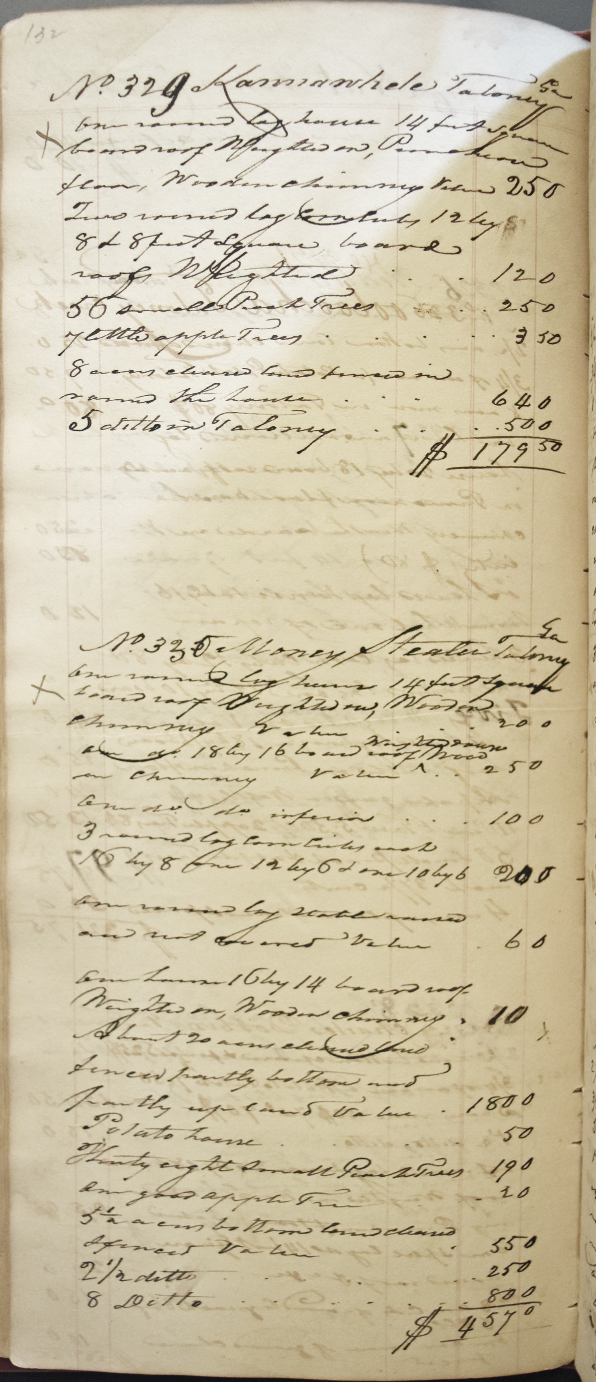 132
No. 329 Kannawhele Taloney Ga
One round log house 14 feet square
board roof Weighted on, Puncheon
floor, Wooden chimney Value 250
Two round log Corn cribs 12 by
8 & 8 feet Square board
roofs Weighted . . . 120
50 small Peach Trees . . . 250
7 little apple Trees . . . . 350
8 acres cleared land fenced in
round the house . . . . 640
5 ditto in Taloney . . . . 500
$ 17950
No. 330 Money Stealer Taloney Ga
One round log house 14 feet Square
board roof Weighted on, Wooden
chimney Value . . . 200
One do. 18 by 16 board roof Weighted on Wood
en Chimney Value . . 250
One do do inferior . . . . 100
3 round log Corn Cribs each
16 by 8 one 12 by 6 & one 10 by 6 200
One round log stable raised
and not covered Value . 60
One house 16 by 14 board roof
Weighted on, Wooden Chimney . 10
About 20 acres cleared land
fenced partly bottom and
partly upland Value . 1800
Potato house . . . . 50
Thirty eight Small Peach Trees 190
One good apple Tree . . 20
5 1/2 acres bottom land cleared
& fenced Value . 550
2 1/2 ditto . . . . 250
8 Ditto . . . . 800
$ 4570